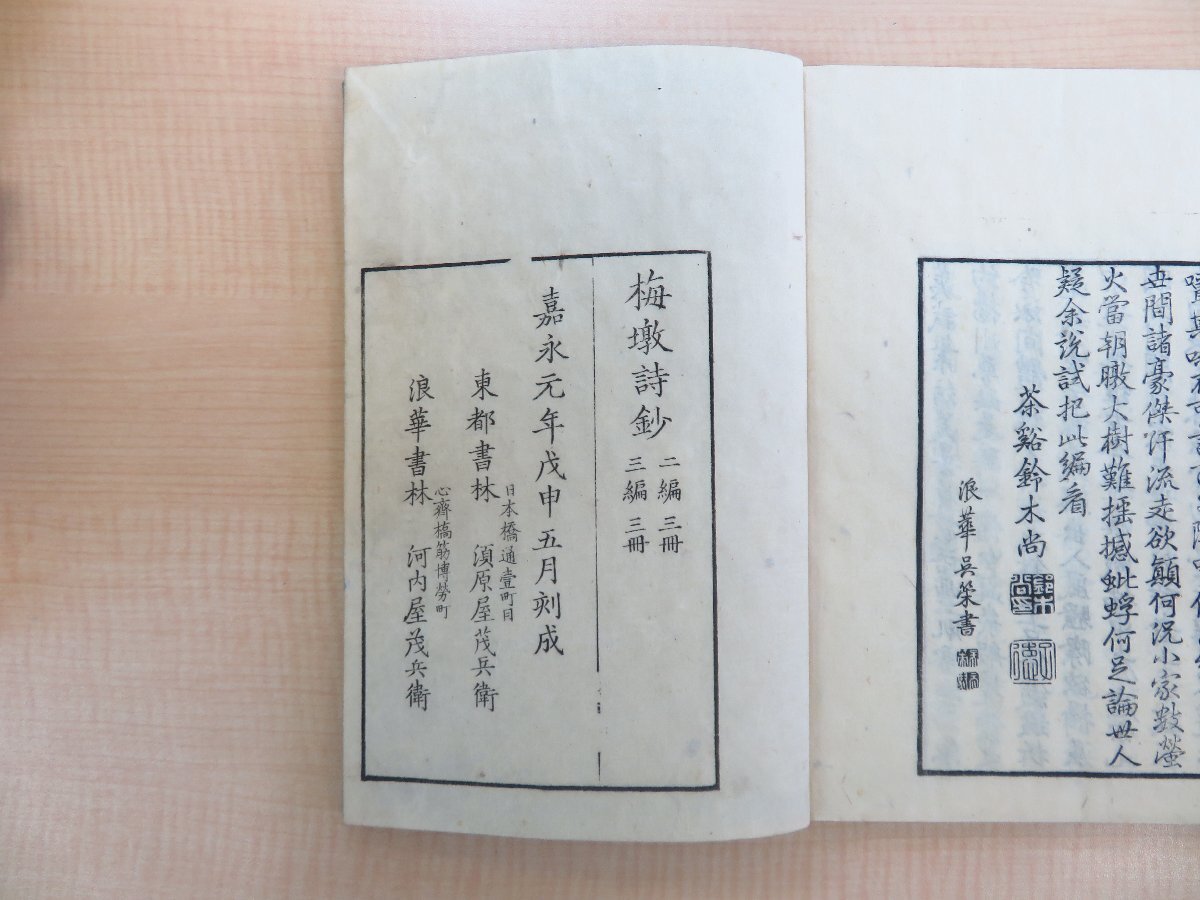 世間諸豪傑汗流走欲顛何況小家数螢
火當朝暾大樹難揺撼蚍蜉何足論世人
疑余説試把此編看
茶谿鈴木尚
浪華呉策書
梅墩詩鈔 二編 三冊
三編 三冊
嘉永元年戊申五月刻成
日本橋通壹町目
東都書林 須原屋茂兵衛
心齋橋筋博勞町
浪華書林 河内屋茂兵衛